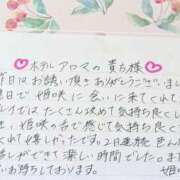 ホテルアロマの貴方様
昨日はお誘い頂きありがとうございまし
日で姫咲に会いに来てくれて
レイではたくさん攻めて気持ち良くし
姫咲の名で感じて気持ち良くな
くれて嬉しかったです。2日連続
しができて楽しい時間でした。ま
お待ちしております。
姫